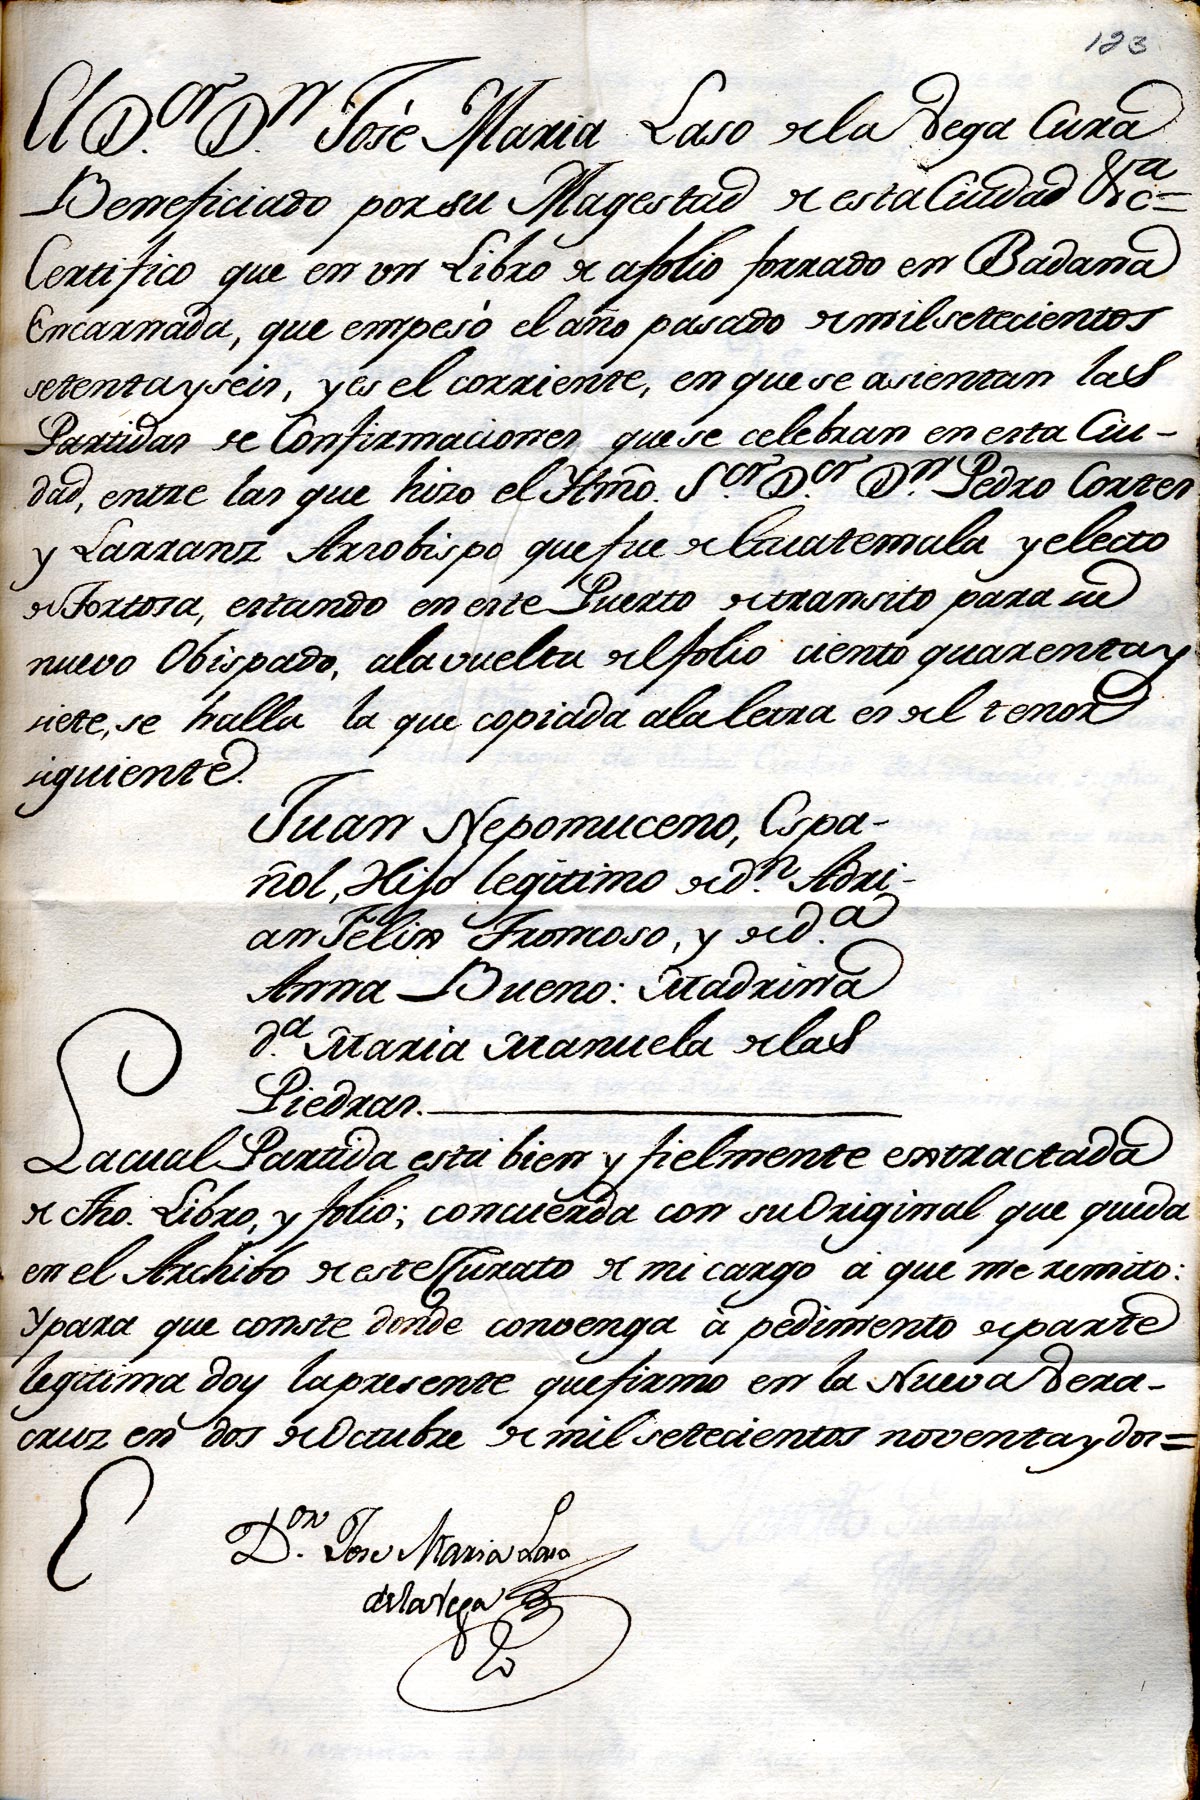 123
El D.or D.n José Maria Laso de la Vega Cura
Beneficiado por su Magestad de esta Ciudad &c.a=
Certifico que en un Libro de afolio forrado en Badana
Encarnada, que empesó el año pasado de mil setecientos
setenta y seis, y es el corriente, en que se asientan las
Partidas de Confirmaciones que se celebran en esta Ciu-
dad, entre las que hizo el Ytmõ. S.or D.or D.n Pedro Cortes
y Larranz Arzobispo que fue de Guatemala y electo
de Tortosa, estando en este Puerto de transito para su
nuevo Obispado, ala vuelta del folio ciento quarenta y
siete, se halla la que copiada ala letra es del tenor
siguiente.
Juan Nepomuceno, Espa-
ñol, Hijo legitimo de d.n Adri-
an Felix Troncoso, y de d.a
Anna Bueno: Madrina
d.a Maria Manuela de las
Piedras.
La cual Partida está bien y fielmente extractada
de dho. Libro, y folio; concuerda con su Original que queda
en el Archibo de este Curato de mi cargo á que me remito:
Y para que conste donde convenga á pedimento de parte
legitima doy la presente que firmo en la Nueva Vera-
cruz en dos de Octubre de mil setecientos noventa y dos=
D.on Jose Maria Laso
de la Vega